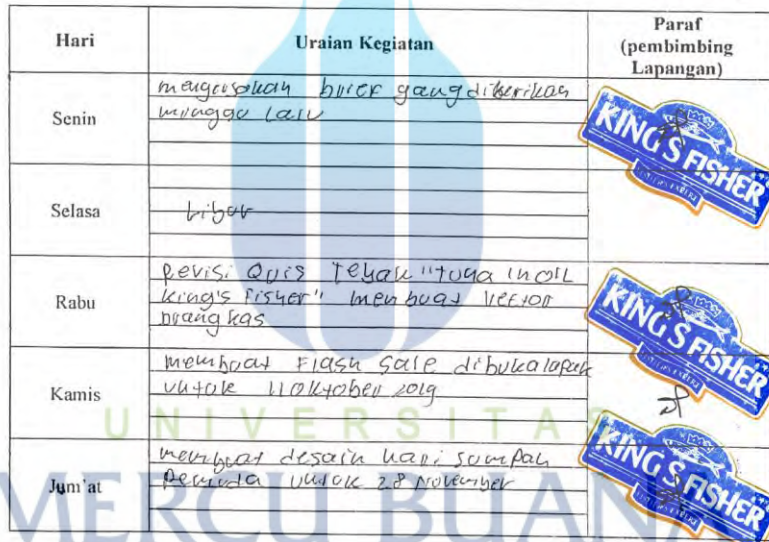 Hari Uraian Kegiatan Paraf
(pembimbing
Lapangan)
Senin
mengerjakan brief yang diberikan
minggu lalu
KING'S FISHER
Selasa
Libur
Rabu
Revisi Quis Tebak "tuna in oil
king's Fisher" membuat vector
brangkas
KING'S FISHER
Kamis
membuat Flash Sale dibukalapak
untuk 11 Oktober 2019
UNIVERSITAS
Jum'at
membuat desain hari sumpah
Pemuda untuk 28 November
KING'S FISHER
MERCU BUANA